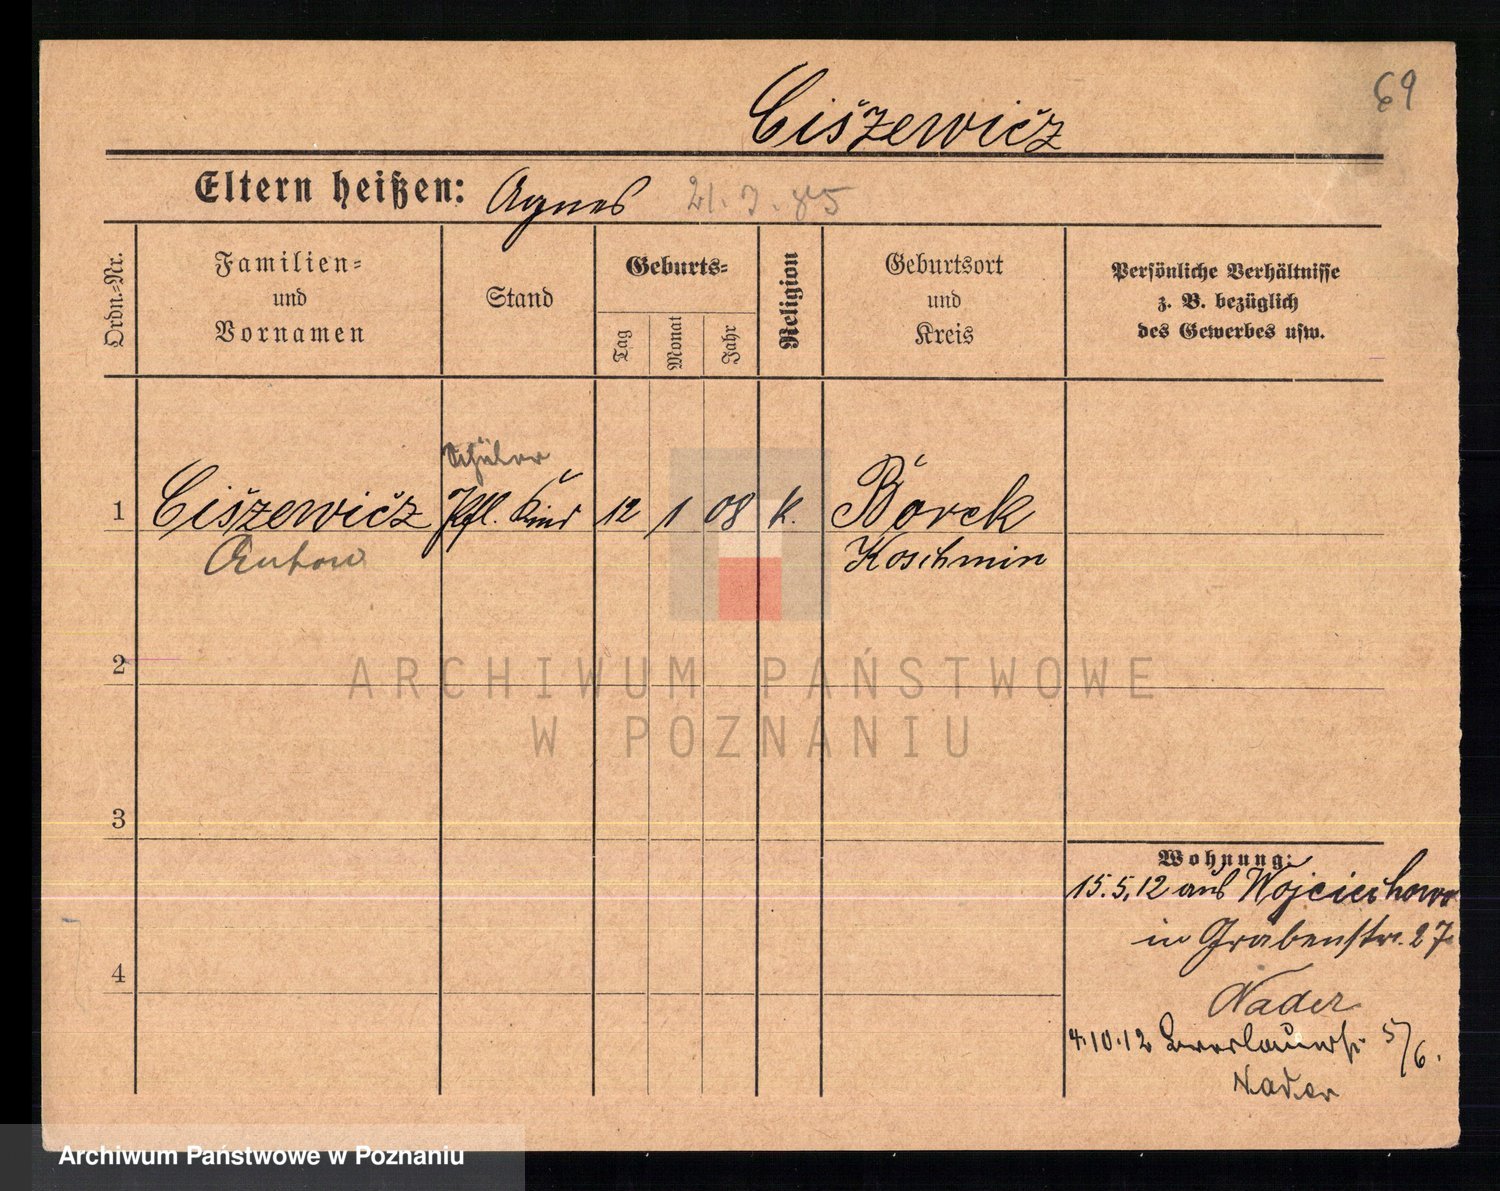 69
Ciszewicz
Eltern heißen: Agnes 21. 7. 85
Ordn.-Nr.
Familien-
und
Vornamen
Stand
Geburts-
Tag
Monat
Jahr
Religion
Geburtsort
und
Kreis
Persönliche Verhältnisse
z. B. bezüglich
des Gewerbes usw.
Schüler
1 Ciszewicz Pfl. Kind 12 1 08 k. Borek
Anton Koschmin
2
ARCHIWUM PAŃSTWOWE
W POZNANIU
3
Wohnung:
15.5.12 aus Wojciechowo
in Grabenstr. 27
4
Nader
4.10.12 Breslauerstr 5/6.
Nader
Archiwum Państwowe w Poznaniu